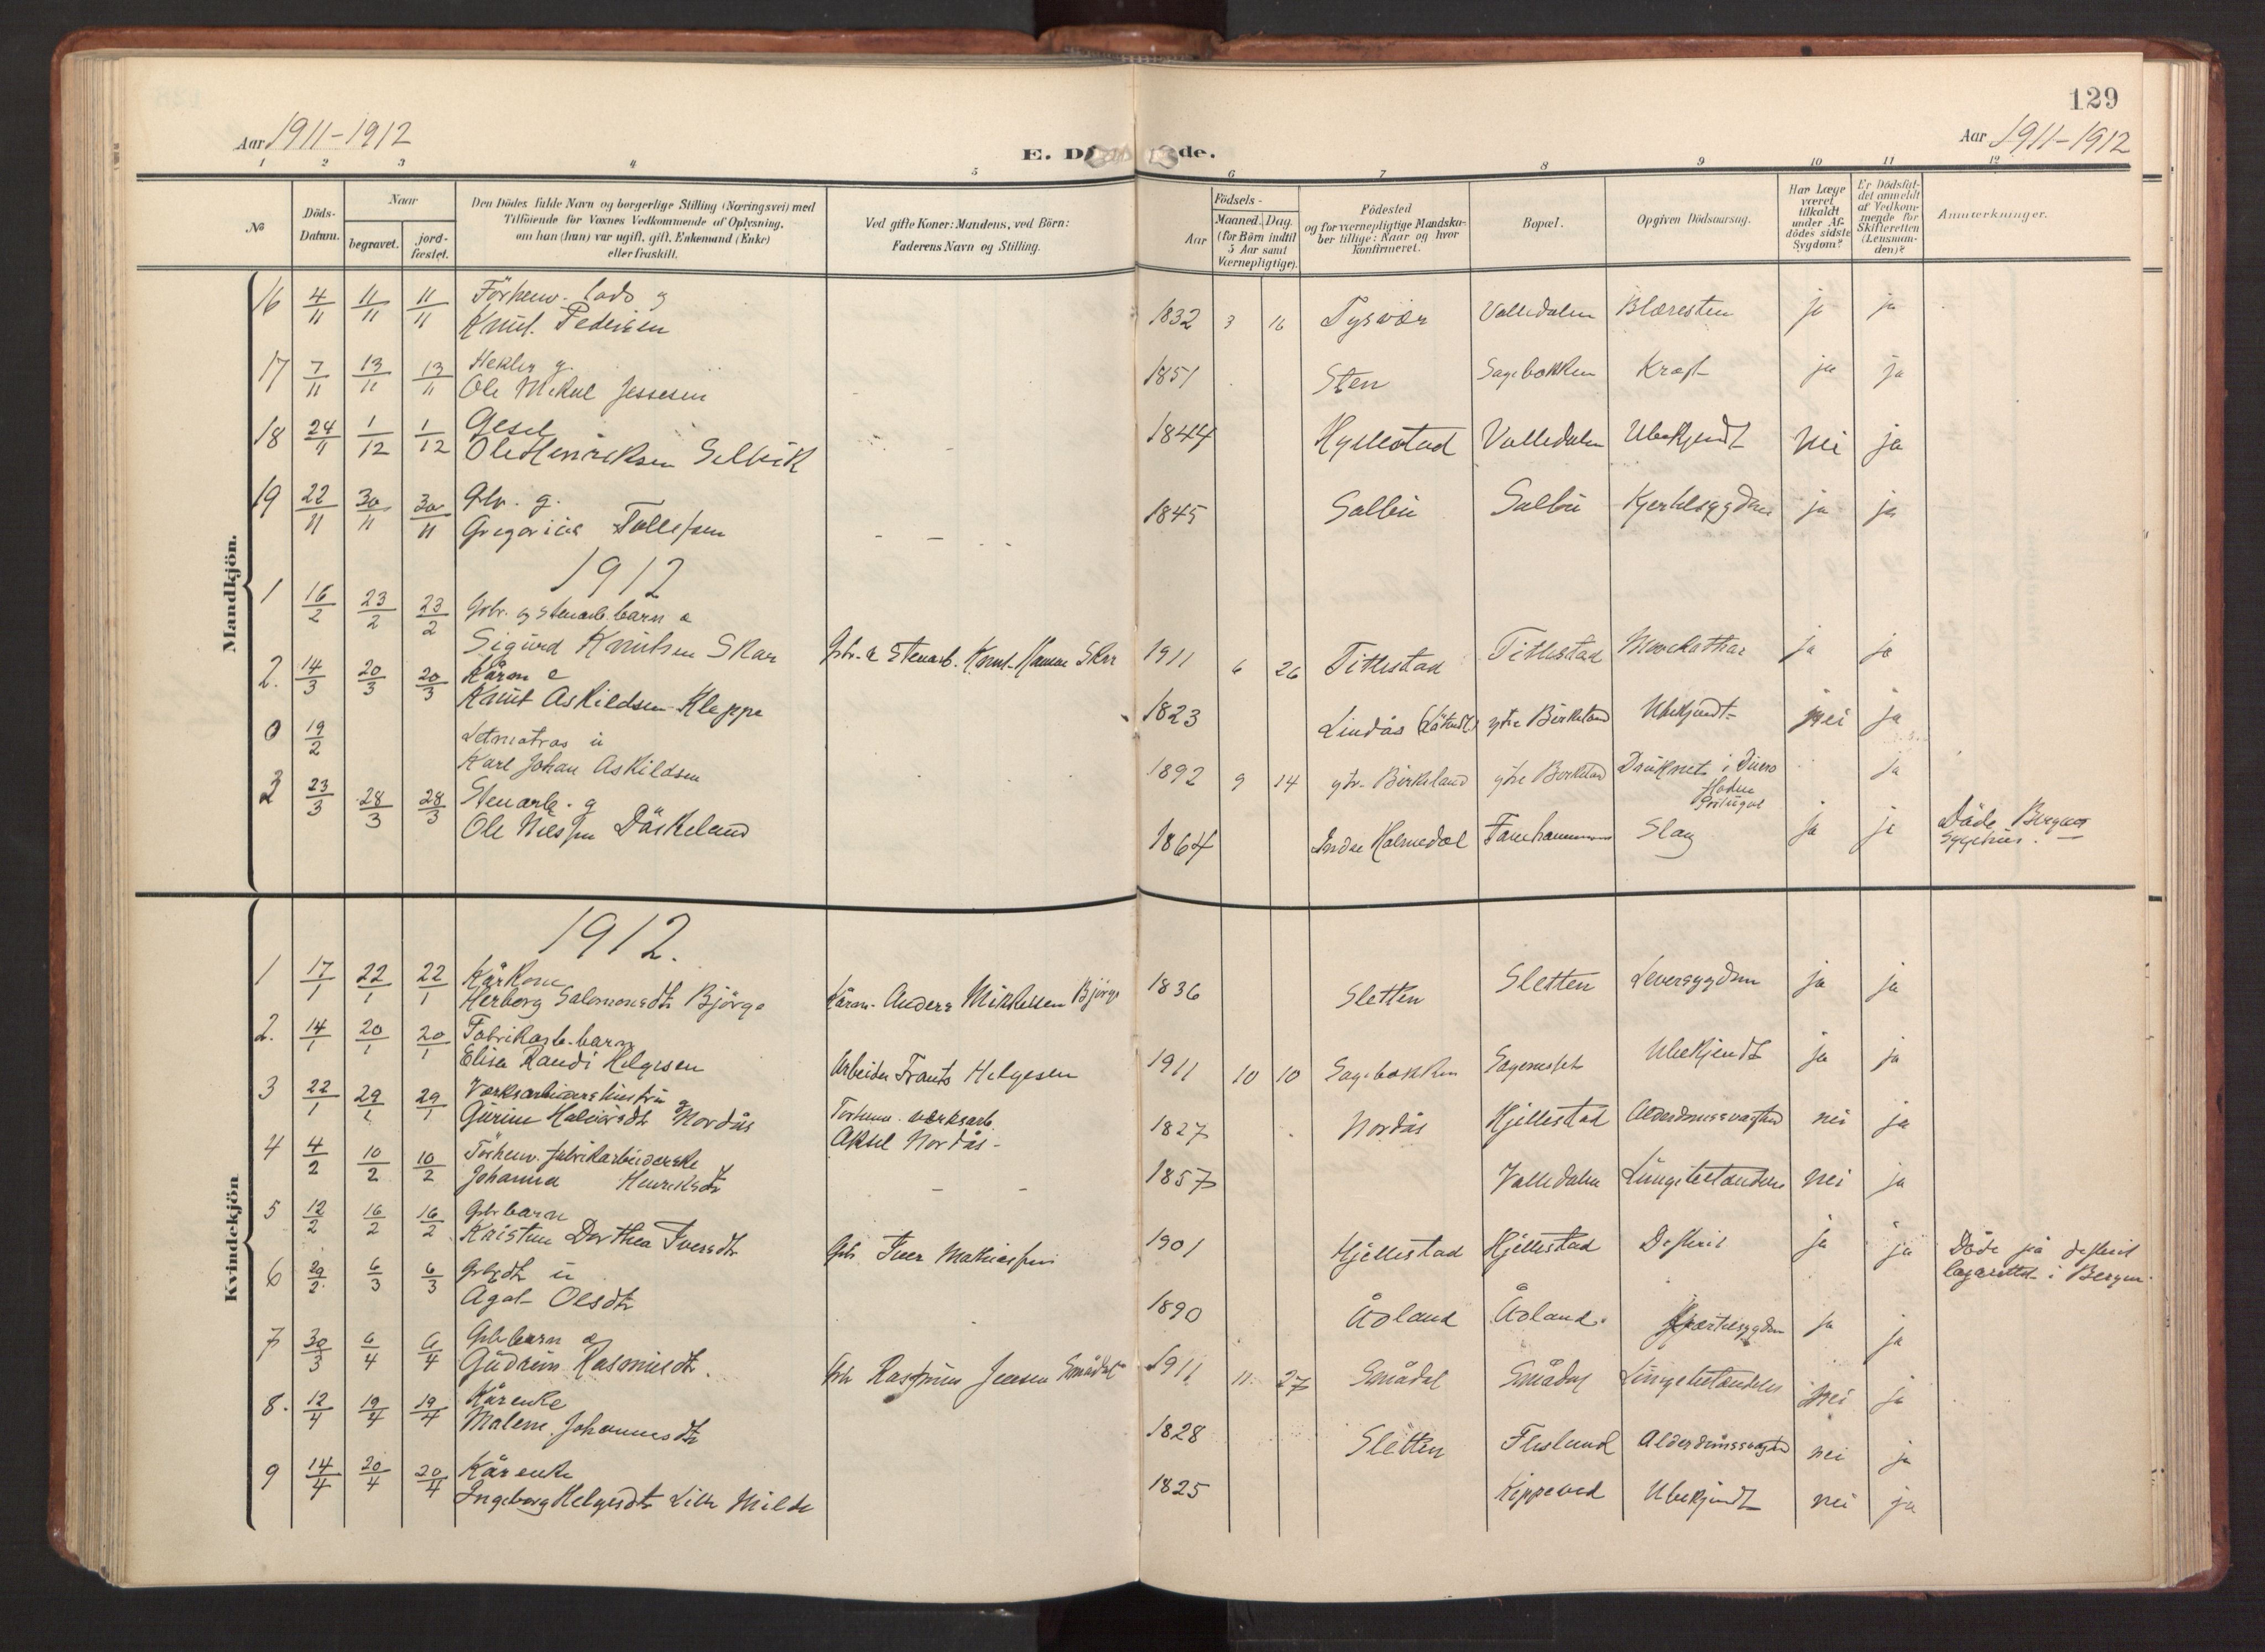 129
Aar 1911-1912
Aar 1911-1912
E. D de.
1 2 3 4 5 6 7 8 9 10 11 12
No
Döds-Datum.
Naar
begravet.
jord-fæstet.
Den Dödes fulde Navn og borgerlige Stilling (Næringsvei) med
Tilföiende for Voxnes Vedkommende af Oplysning,
om han (hun) var ugift, gift, Enkemand (Enke)
eller fraskilt.
Ved gifte Koner: Mandens, ved Börn:
Faderens Navn og Stilling.
Födsels-
Aar
Maaned. Dag.
(for Börn indtil
5 Aar samt
Værnepligtige).
Födested
og for værnepligtige Mandska-
ber tillige: Naar og hvor
konfirmeret.
Bopæl.
Opgiven Dödsaarsag.
Har Læge
været
tilkaldt
under Af-
dödes sidste
Sygdom?
Er Dödsfal-
det anmeldt
af Vedkom-
mende for
Skifteretten
(Lensman-
den)?
Anmærkninger.
Mandkjön.
16 4/11 11/11 11/11 Forhenv. lods g
Knut Pedersen 1832 3 16 Tysvær Valledalen Blæresten ja ja
17 7/11 13/11 13/11
Ole Mikal Jessesen 1851 Sten Sagebakken Kræft ja ja
18 24/11 1/12 1/12
Ole Henriksen Selvik 1844 Hyllestad Valledalen Ubekjendt nei ja
19 22/11 30/11 30/11 Gbr. g.
Gregorius Tollefsen 1845 Salbu Salbu ja ja
1912
1 16/2 23/2 23/2 Gbr. og stenarb. barn
Sigurd Knutsen Skar 1911 6 26 Tittlestad Tittlestad ja ja
2. 14/3 20/3 20/3 Kårm e
Knut Askildsen Kleppe 1823 Lindås ytre Birkeland Ubekjendt nei ja
0 19/2 Letmatros u
Karl Johan Askildsen 1892 9 14 ytr. Birkeland ytre Birkeland Druknet i
Portugal ja
3 23/3 28/3 28/3 Stenarb. g
Ole Nilssen 1864 Indre Holmedal Fanehammeren Slag ja ja Döde Bergens
Sygehus.
Kvindekjön
1912.
1 17/1 22/1 22/1 Kårkone
Herborg Salomonsdtr Björge Kårm. Anders Mikkelsen Björge 1836 Sletten Sletten Leversygdom ja ja
2. 14/1 20/1 20/1 Fabrikarb. barn
Elisa Randi Helgesen Arbeider Frants Helgesen 1911 10 10 Sagebakken Ubekjendt ja ja
3 22/1 29/1 29/1 g
Gurine Halvorsdtr Nordås Forhenv. værksarb.
Aksel Nordås 1827 Nordås Hjellestad nei ja
4 4/2 10/2 10/2 Forhenv. fabrikarbeiderske
Johanna Henriksdtr 1857 Valledalen Lungebetændelse nei ja
5 12/2 16/2 16/2 Gbr barn
Kristine Dorthea Iversdtr Gbr. Iver Mathiassen 1901 Hjellestad Hjellestad Difterit ja ja Döde på difterit
lazarettet i Bergen.
6 29/2 6/3 6/3 u
Agat Olsdtr 1890 Ådland Ådland. ja ja
7 30/3 6/4 6/4 Gbr barn
Gudrun Rasmusdtr. Gbr Rasmus Jensen Smådal 1911 11 27 Smådal Smådal Lungebetændelse nei ja
8. 12/4 19/4 19/4 Kårenke
Malene Johannesdtr 1828 Sletten Flesland nei ja
9 14/4 20/4 20/4 Kårenke
Ingeborg Helgesdtr Lille Milde 1825 Ubekjendt nei ja